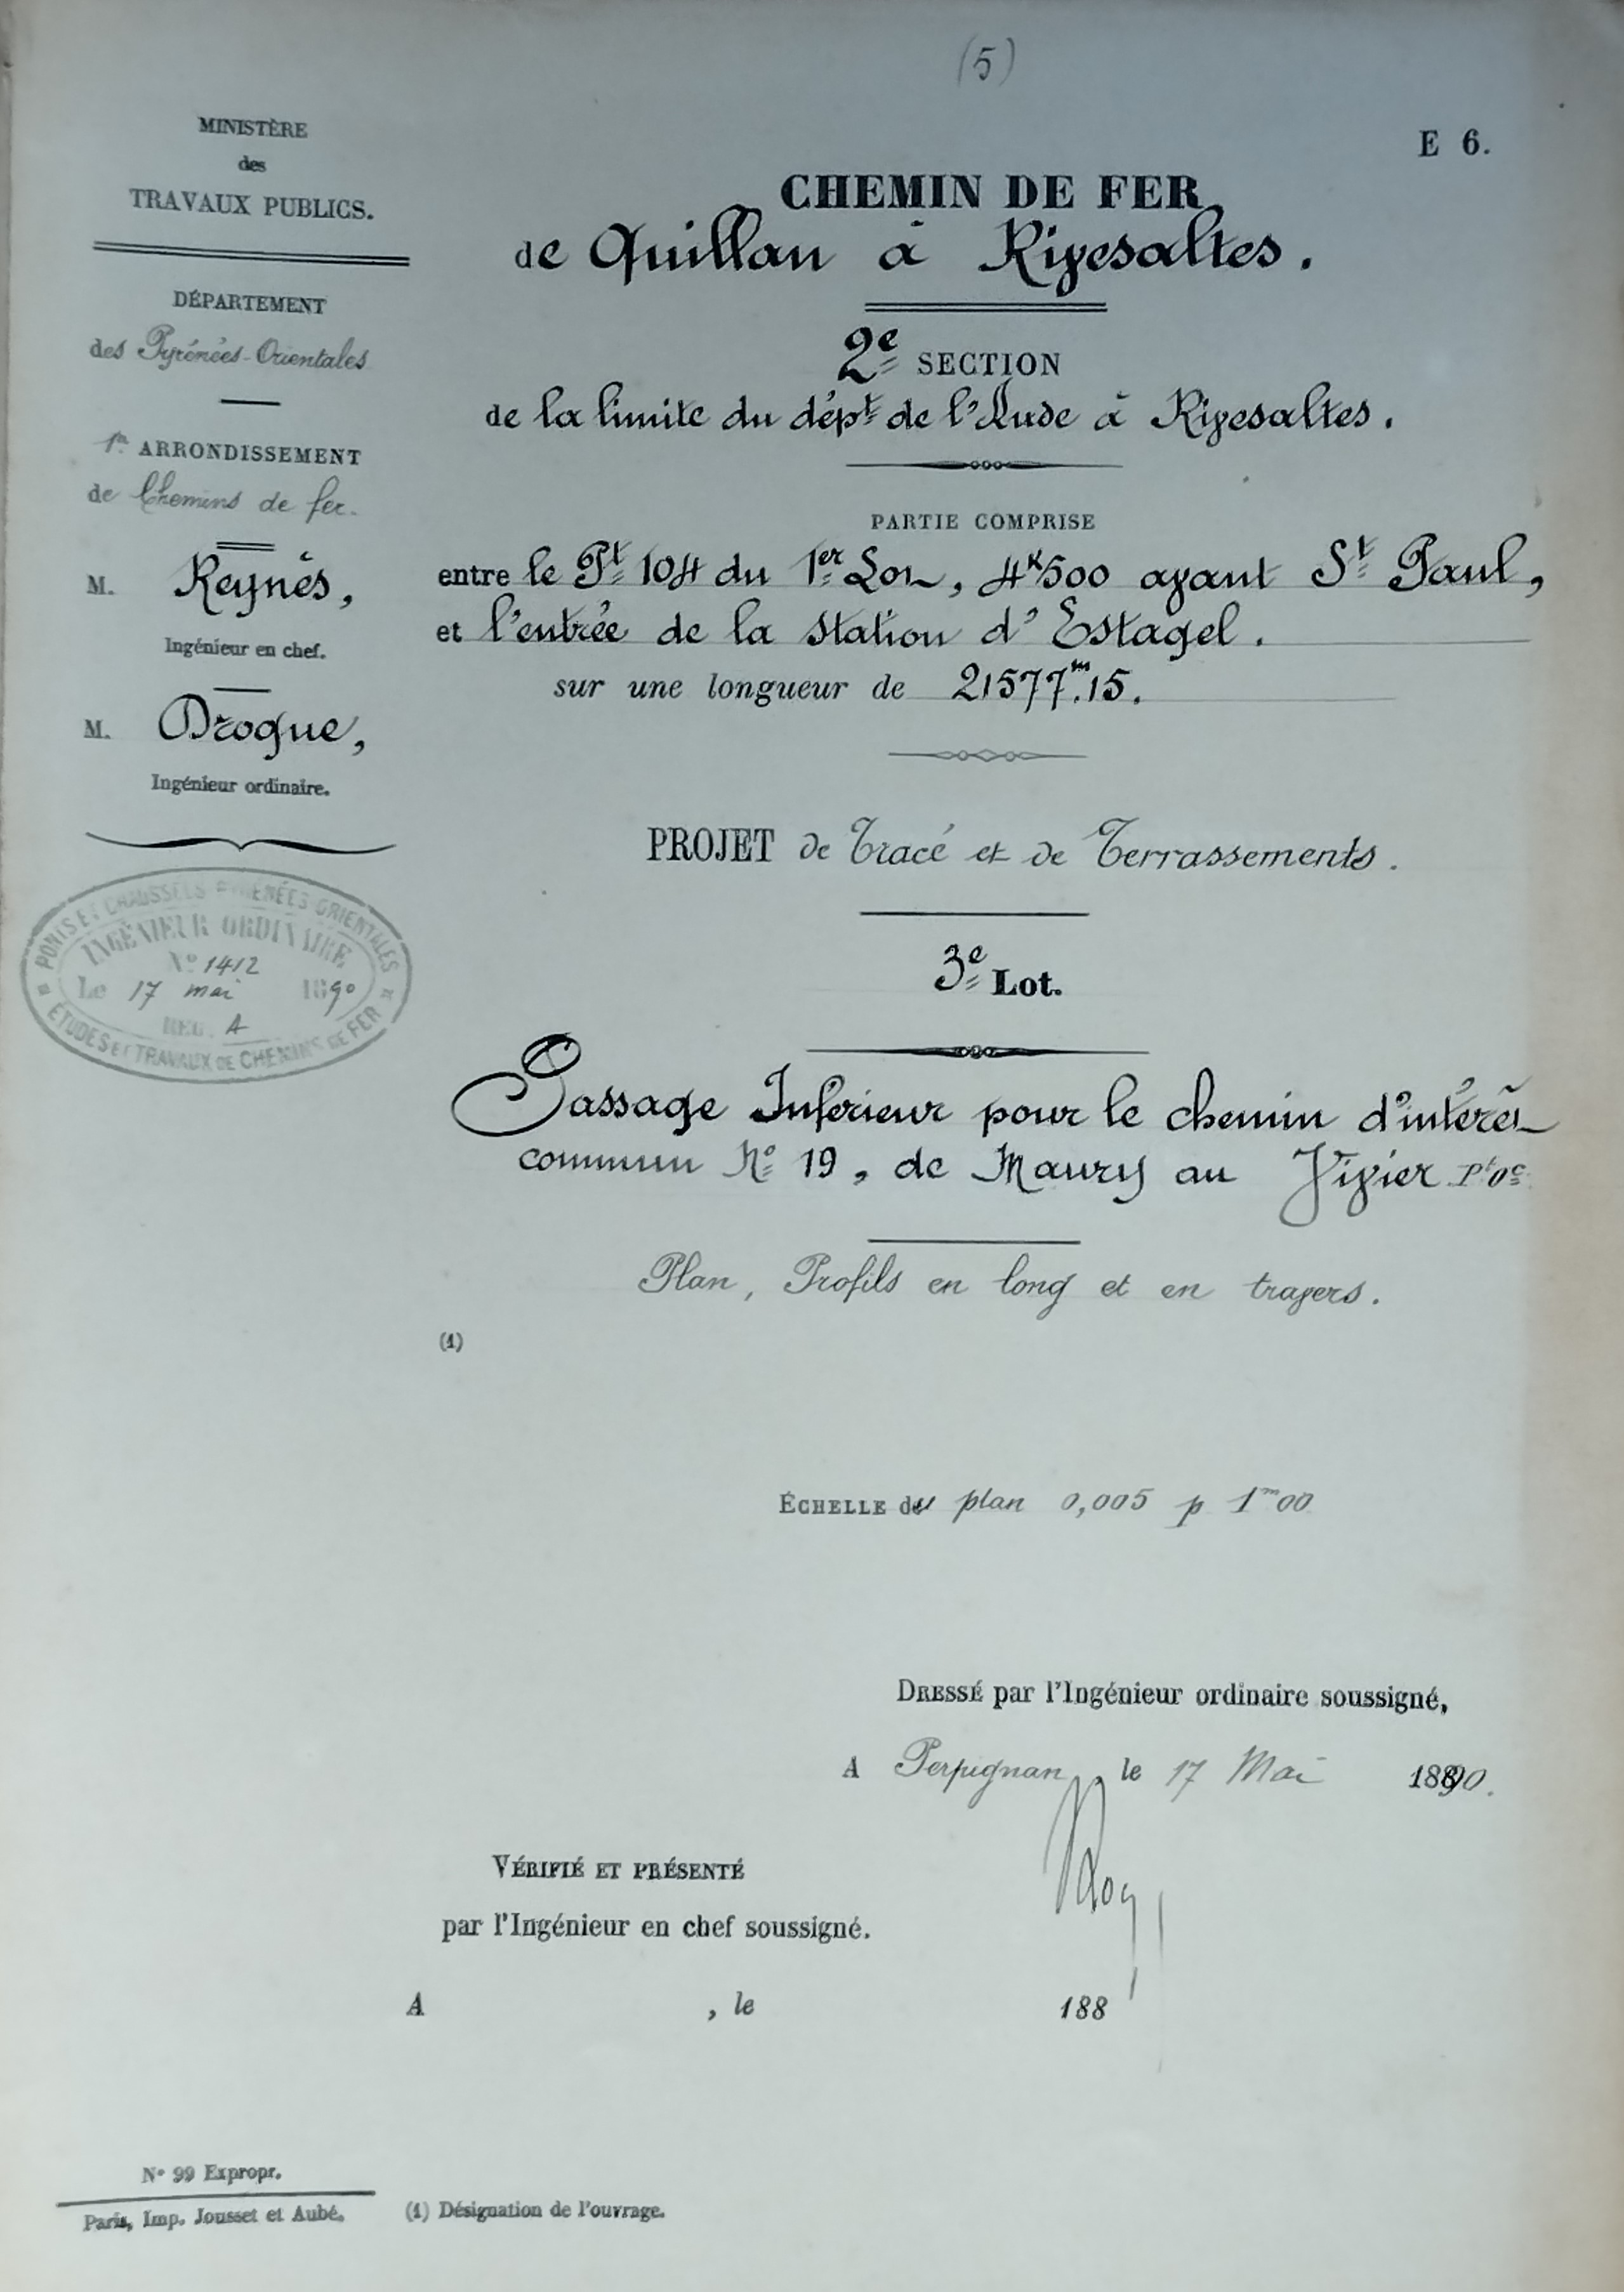 (5)
E 6.
MINISTÈRE
des
TRAVAUX PUBLICS.
DÉPARTEMENT
des Pyrénées-Orientales
1er ARRONDISSEMENT
de Chemins de fer.
M. Reynès,
Ingénieur en chef.
M. Drogue,
Ingénieur ordinaire.
PONTS ET CHAUSSÉES PYRÉNÉES ORIENTALES
INGÉNIEUR ORDINAIRE
No 1412
Le 17 mai 1890
REG. A
ÉTUDES ET TRAVAUX DE CHEMINS DE FER
CHEMIN DE FER
de Quillan à Rivesaltes.
2e SECTION
de la limite du dépt de l'Aude à Rivesaltes.
PARTIE COMPRISE
entre le Pt 104 du 1er Lot, 4k500 avant St Paul,
et l'entrée de la station d'Estagel.
sur une longueur de 21577m.15.
PROJET de Tracé et de Terrassements.
3e Lot.
Passage Inférieur pour le chemin d'intérêt
commun No 19, de Maury au Vivier
Plan, Profils en long et en travers.
(1)
ÉCHELLE du plan 0,005 p 1m00
DRESSÉ par l'Ingénieur ordinaire soussigné,
A Perpignan, le 17 Mai 1890.
VÉRIFIÉ ET PRÉSENTÉ
par l'Ingénieur en chef soussigné.
A , le 188
No 99 Expropr.
Paris, Imp. Jousset et Aubé.
(1) Désignation de l'ouvrage.